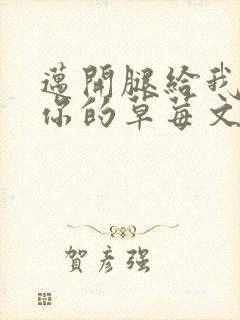 邁開腿給我
你的草莓文
賀彥強